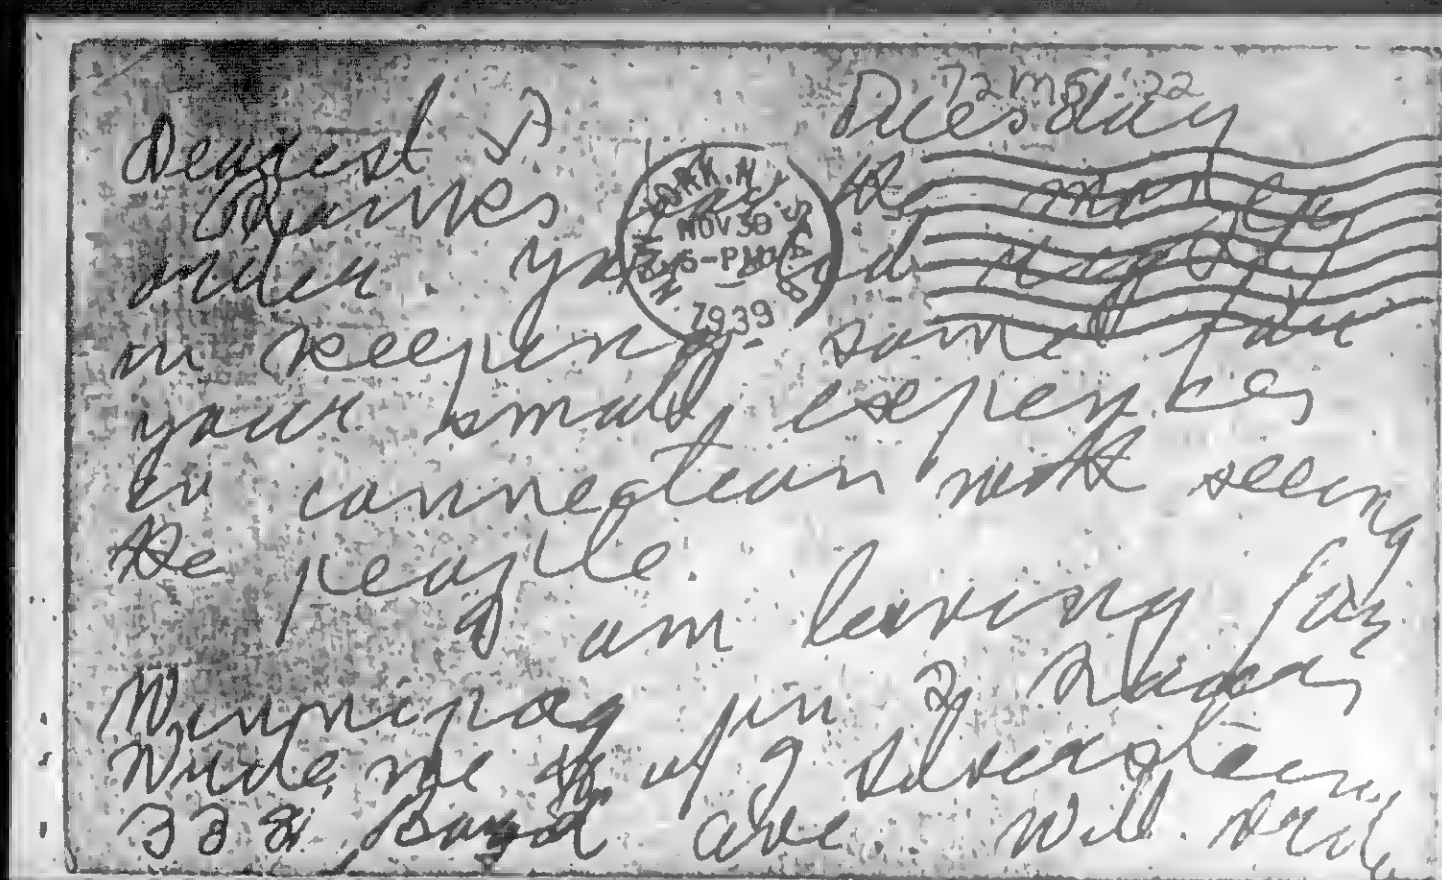 72 M St. 22
Tuesday
Dearest A
Thanks for the money
order. You did right
in keeping some for
your small expences
in connection with seeing
the people.
I am leaving for
Winnipeg in 2 hours,
Write me
Silverstein,
Boyd Ave. Will
NEW YORK, N.Y.
NOV 30
5-PM
1939